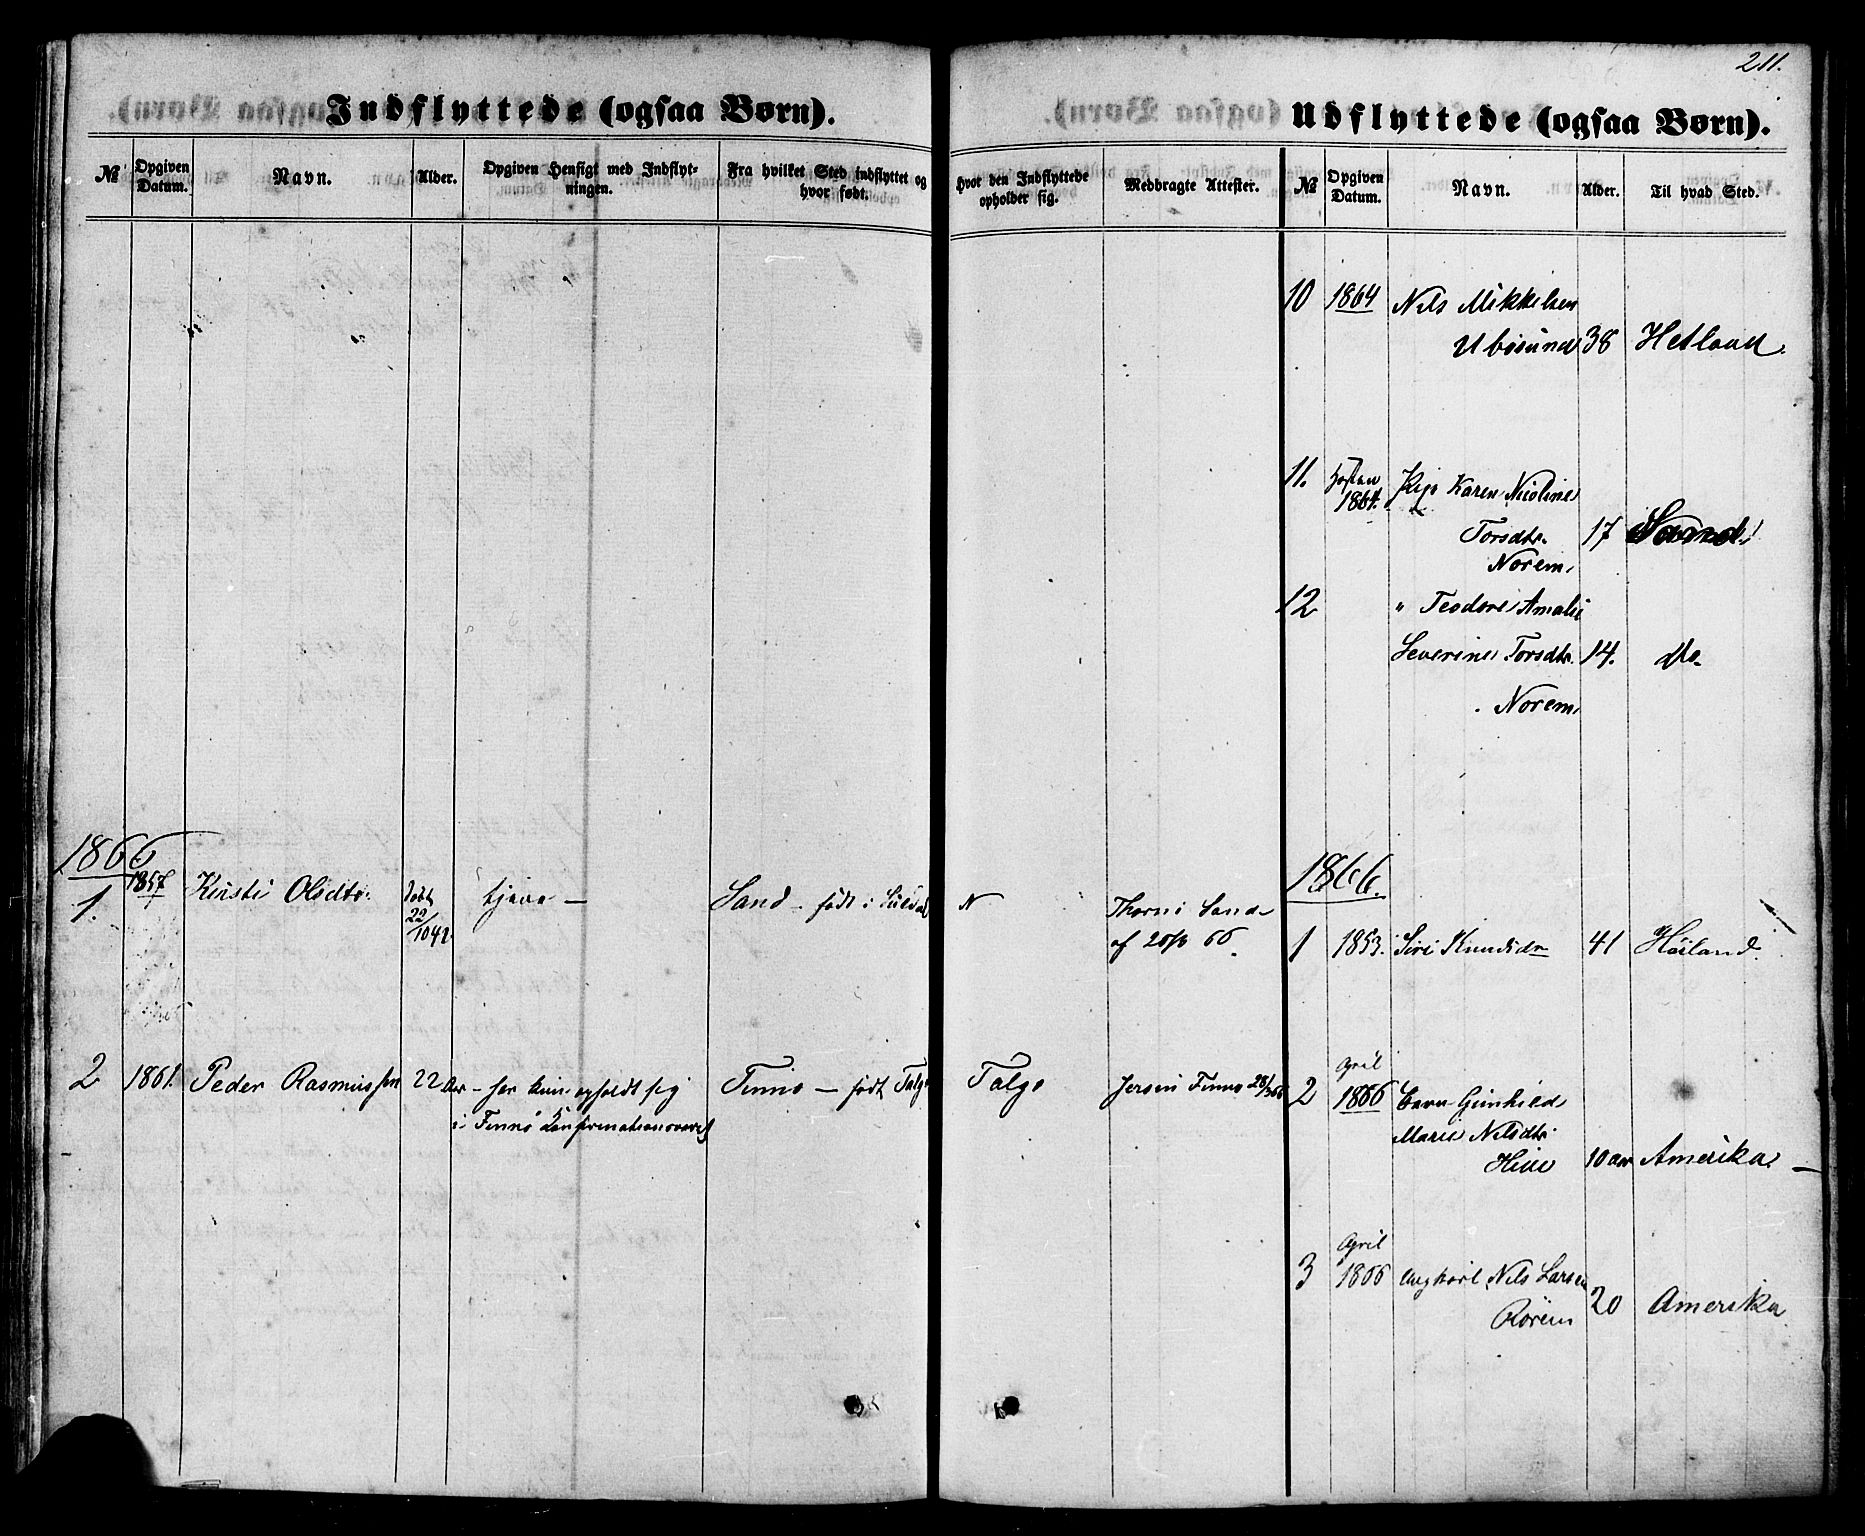 211.
Indflyttede (ogsaa Børn).
№
Opgiven Datum.
Navn.
Alder.
Opgiven Hensigt med Indflytningen.
Fra hvilket Sted indflyttet og hvor født.
Hvor den Indflyttede opholder sig.
Medbragte Attester.
1866
1.
1857
Kirsti Olsdtr.
22/10 42
tjene —
Sand - født i Suldal
N
Sand
af 66.
2
1861.
Peder Rasmussen
22 Aar
- har kun opholdt sig
i Finnø Confirmations
Finnø — født Talgø
Talgø
Finnø
Udflyttede (ogsaa Børn).
№
Opgiven Datum.
Navn.
Alder.
Til hvad Sted.
10
1864
Nils Mikkelsen
Ubøsund
38
Hetland.
11.
Høsten
1864.
Pige Karen Nicoline
Torsdtr.
Norem
17
Sand
12
" Teodore Amalie
Severine Torsdtr.
Norem
14.
do.
1866.
1
1853.
Siri Knudsdr
41
Høiland.
2
April
1866
Gunhild
Marie Nilsdtr.
10 aar
Amerika. —
3
April
1866
ungkarl Nils Larsen
Rörem
20
Amerika